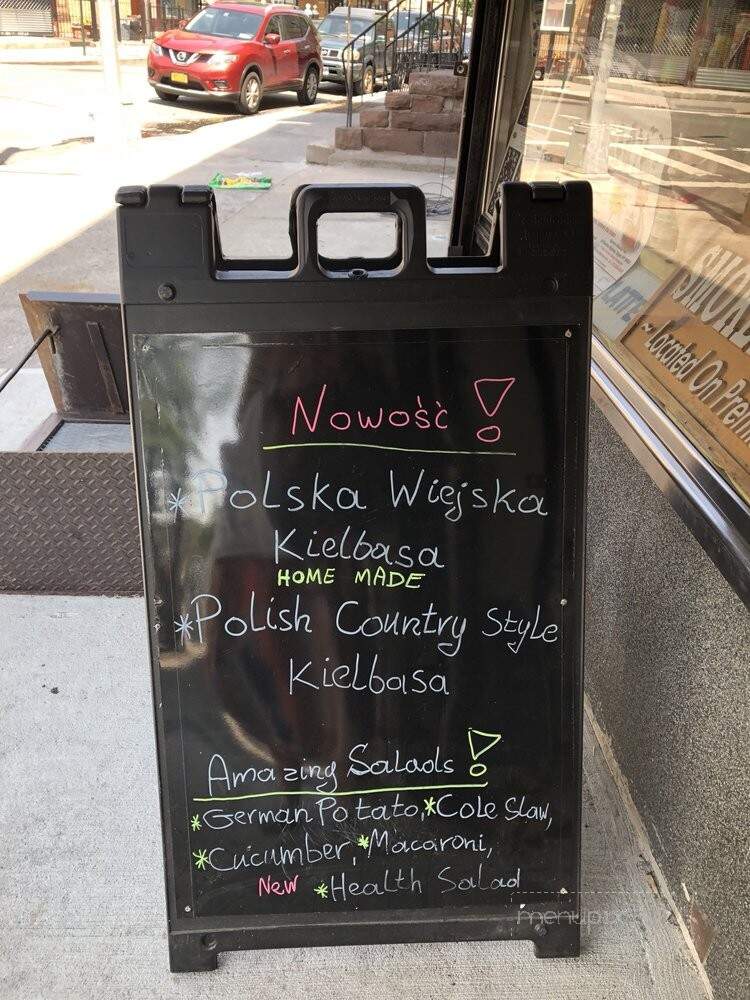 Nowość!
*Polska Wiejska
Kielbasa
HOME MADE
*Polish Country Style
Kielbasa
Amazing Salads!
*German Potato, *Cole Slaw,
*Cucumber, *Macaroni,
New *Health Salad
~Located On Pre
menup